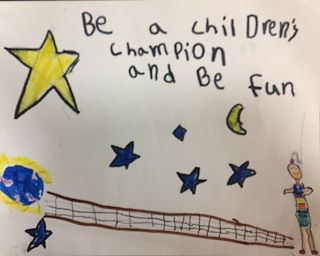 Be a chilDren's
champion
and Be fun